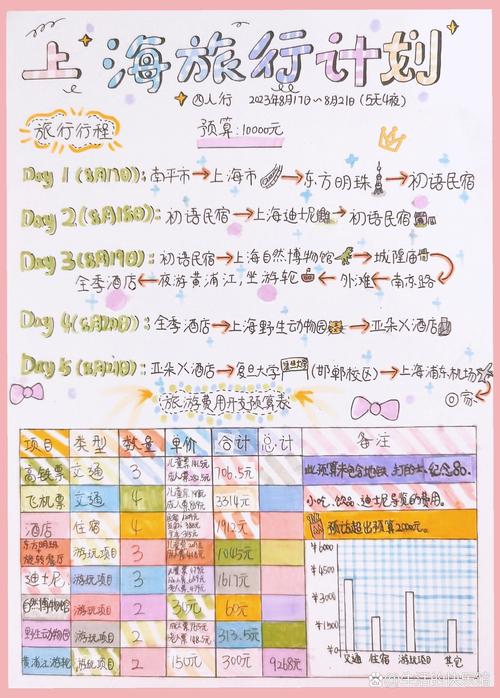 上海旅行计划
四人行 2023年8月17日~8月21日(5天4夜)
旅行行程
预算:10000元
Day 1(8月17日):南平市→上海市→东方明珠→初语民宿
Day 2(8月18日):初语民宿→上海迪士尼→初语民宿
Day 3(8月19日):初语民宿→上海自然博物馆→城隍庙
全季酒店←夜游黄浦江,坐游轮←外滩←南京路
Day 4(8月20日):全季酒店→上海野生动物园→亚朵X酒店
Day 5(8月21日):亚朵X酒店→复旦大学(邯郸校区)→上海浦东机场
回家
旅游费用开支预算表
项目 类型 数量 单价 合计 总计 备注
高铁票 交通 3 706.5元 此预算未包含地铁、打的士、纪念品、
飞机票 交通 4 3314元 小吃、饮品、迪士尼导览的费用。
酒店 住宿 4 1912元 预估超出预算2000元。
东方明珠旋转餐厅 游玩项目 3 1045元
迪士尼 游玩项目 3 1617元
自然博物馆 游玩项目 2 30元 60元
野生动物园 游玩项目 2 313.5元
黄浦江游轮 游玩项目 2 150元 300元 9268元
¥6000
¥4500
¥3000
¥1500
¥0
交通 住宿 游玩项目 其它